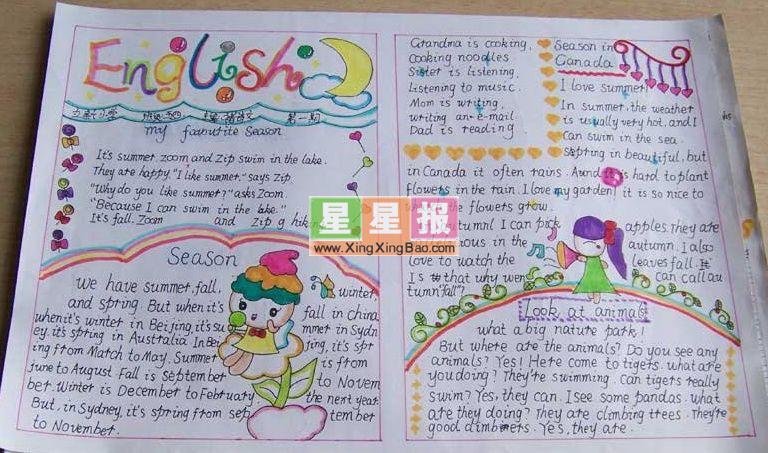 English
my favourite Season
It's summer. zoom and Zip swim in the lake.
They are happy. "I like summer." says Zip.
"Why do you like summer?" asks Zoom.
"Because I can swim in the lake."
It's fall. Zoom and Zip g hik
星星报
www.XingXingBao.com
Season
we have summer, fall, winter,
and spring. But when it's fall in china
when it's winter in Beijing, it's su mmer in Sydn
ey. it's spring in Australia. In Bei jing, it's spr
ing from Match to May. Summer is from
June to August. Fall is September to Novem
ber. Winter is December to February the next year.
But, in Sydney, it's spring from sep tember
to November.
Grandma is cooking,
Cooking noodles
Sister is listening.
Listening to music.
Mom is writing.
writing an e-mail.
Dad is reading
Season in
Canada
I love summer!
In summer, the weather
is usually very hot, and I
can swim in the sea.
Spring in beautiful, but
in Canada it often rains. And it is hard to plant
flowers in the rain. I love my garden it is so nice to
the flowers grow.
tumn I can pick apples. they are
ous in the autumn. I also
love to watch the leaves fall. It
Is that why we can call au
tumn "fall"?
Look at animals
what a big nature park!
But where are the animals? Do you see any
animals? Yes! Here come to tigers. what are
you doing? They're swimming. can tigers really
swim? Yes, they can. I see some pandas. what
are they doing? they are climbing trees. They're
good climbers. Yes, they are.